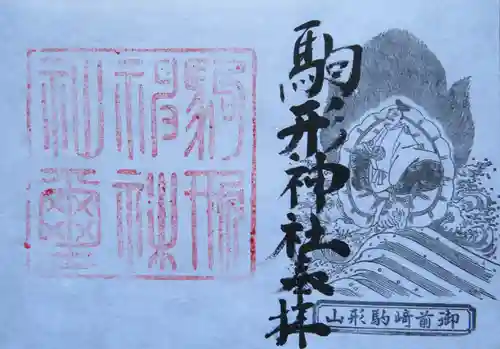 駒形神社奉拝
駒形
神社
利璽
山形駒﨑前御